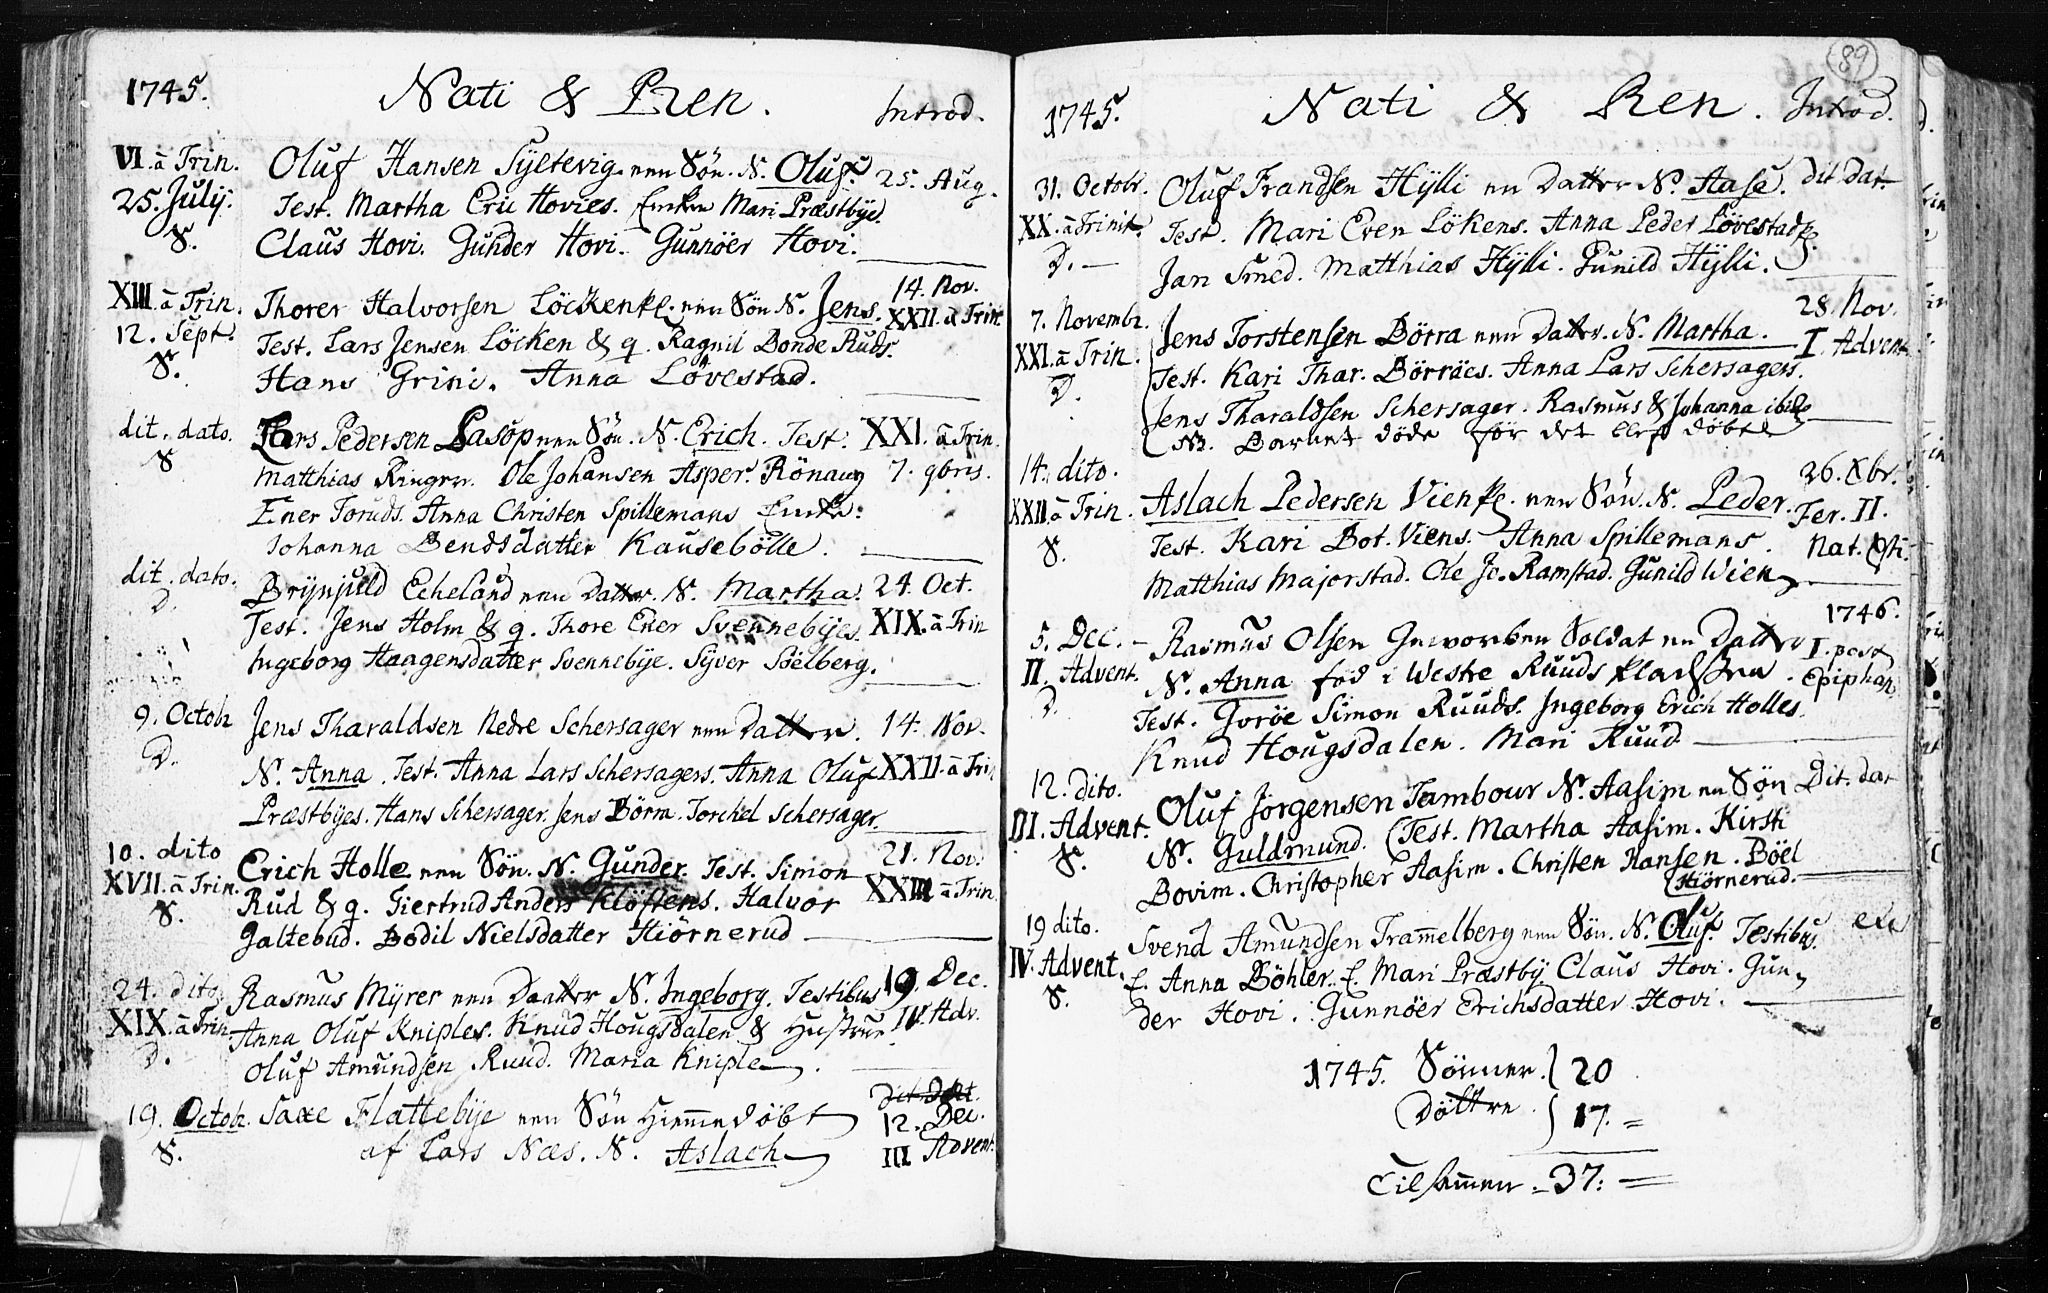 1745. Nati & Ren. Introd.
VI. ā Trin. Oluf Hansen Syltevig en Søn. N. Oluf. 25. Aug.
25. Julÿ. Test. Martha Eric Hovies. Mari Præstbÿe.
S. Claus Hovi. Gunder Hovi. Gunnöer Hovi.
XIII. ā Trin. Thorer Halvorsen Löckenℓ. en Søn N. Jens. 14. Nov.
12. Sept. Test. Lars Jensen Löcken & q. Ragnil Bonde Ruds. XXII. ā Trin.
S. Hans Grini. Anna Lövestad.
dit. dato. Lars Pedersen Lasop en Søn. N. Erich. Test. XXI. ā Trin.
S Matthias Ringer. Ole Johansen Asper. Rönaug 7. 9bris.
Ener Toruds. Anna Christen Spillemans
Johanna Bendsdatter Kausebölle.
dit. dato. Brÿnjuld Echeland en Datter. N. Martha. 24. Oct.
D. Test. Jens Holm & q. Thore Ener Svennebÿes. XIX. ā Trin
Ingeborg Haagensdatter Svennebÿe. Sÿver Söelberg.
9. Octobr Jens Tharaldsen Nedre Schersager en Datter. 14. Nov.
D. N. Anna. Test. Anna Lars Schersagers. Anna Oluf XXII. ā Trin
Præstbÿes. Hans Schersager. Jens Börra. Torckel Schersager.
10. dito Erich Holle en Søn. N. Gunder. Test. Simon 21. Nov.
XVII. ā Trin. Rud & q. Giertrud Anders Klöftens. Halvor XXIII ā Trin.
S. Galtebud. Bodil Nielsdatter Hiörnerud
24. dito Rasmus Mÿrer en Daatter N. Ingeborg. Testibus 19. Dec.
XIX. ā Trin. Anna Oluf Kniples. Knud Hougsdalen & Hustrue IV. Adv.
D. Oluf Amundsen Ruud. Maria Kniple.
19. Octobr. Saxe Flattebÿe en Søn Hiem̄edöbt dit Dat. 12. Dec.
S. af Lars Næs. N. Aslach III Advent.
89
1745. Nati & Ren. Introd.
31. Octobr. Oluf Frandsen Hÿlli en Datter N. Aase. dit Dat.
XX. ā Trinit. Test. Mari Even Lökens. Anna Peder Lövestads.
D. Jan Smed. Matthias Hÿlli. Gunild Hÿlli.
7. Novembr. Jens Torstensen Börra en Datter. N. Martha. 28. Nov.
XXI. ā Trin. Test. Kari Thar. Börraes. Anna Lars Schersagers. I. Advent
D. Jens Tharaldsen Schersager. Rasmus & Johanna ibid.
NB. Barnet döde för det blef döbt
14. dito. Aslach Pedersen Vienℓ. en Søn. N. Peder. 26. Xbr.
XXII. ā Trin. Test. Kari Bot. Viens. Anna Spillemans. Fer. II.
S. Matthias Majorstad. Ole Jo. Ramstad. Gunild Wien Nat. Chri.
5. Dec. Rasmus Olsen Gevorben Soldat en Datter 1746.
II. Advent. N. Anna fød i Westre Ruuds I. post
D. Test. Goröe Simon Ruuds. Ingeborg Erich Holles. Epiphan
Knud Hougsdalen. Mari Ruud
12. dito. Oluf Jörgensen Tambour N. Aasim en Søn Dit. dat
III. Advent. N. Guldmund. Test. Martha Aasim. Kirsti
S. Bovim. Christopher Aasim. Christen Hansen. Böel
Hiörnerud.
19 dito. Svend Amundsen Tram̄elberg en Søn. N. Oluf. Testibus.
IV. Advent. E. Anna Böhler. E. Mari Præstbÿ Claus Hovi. Gun
S. der Hovi. Gunnöer Erichsdatter Hovi.
1745. Sönner. 20
Döttre. 17. =
Tilsam̄en. = 37: =